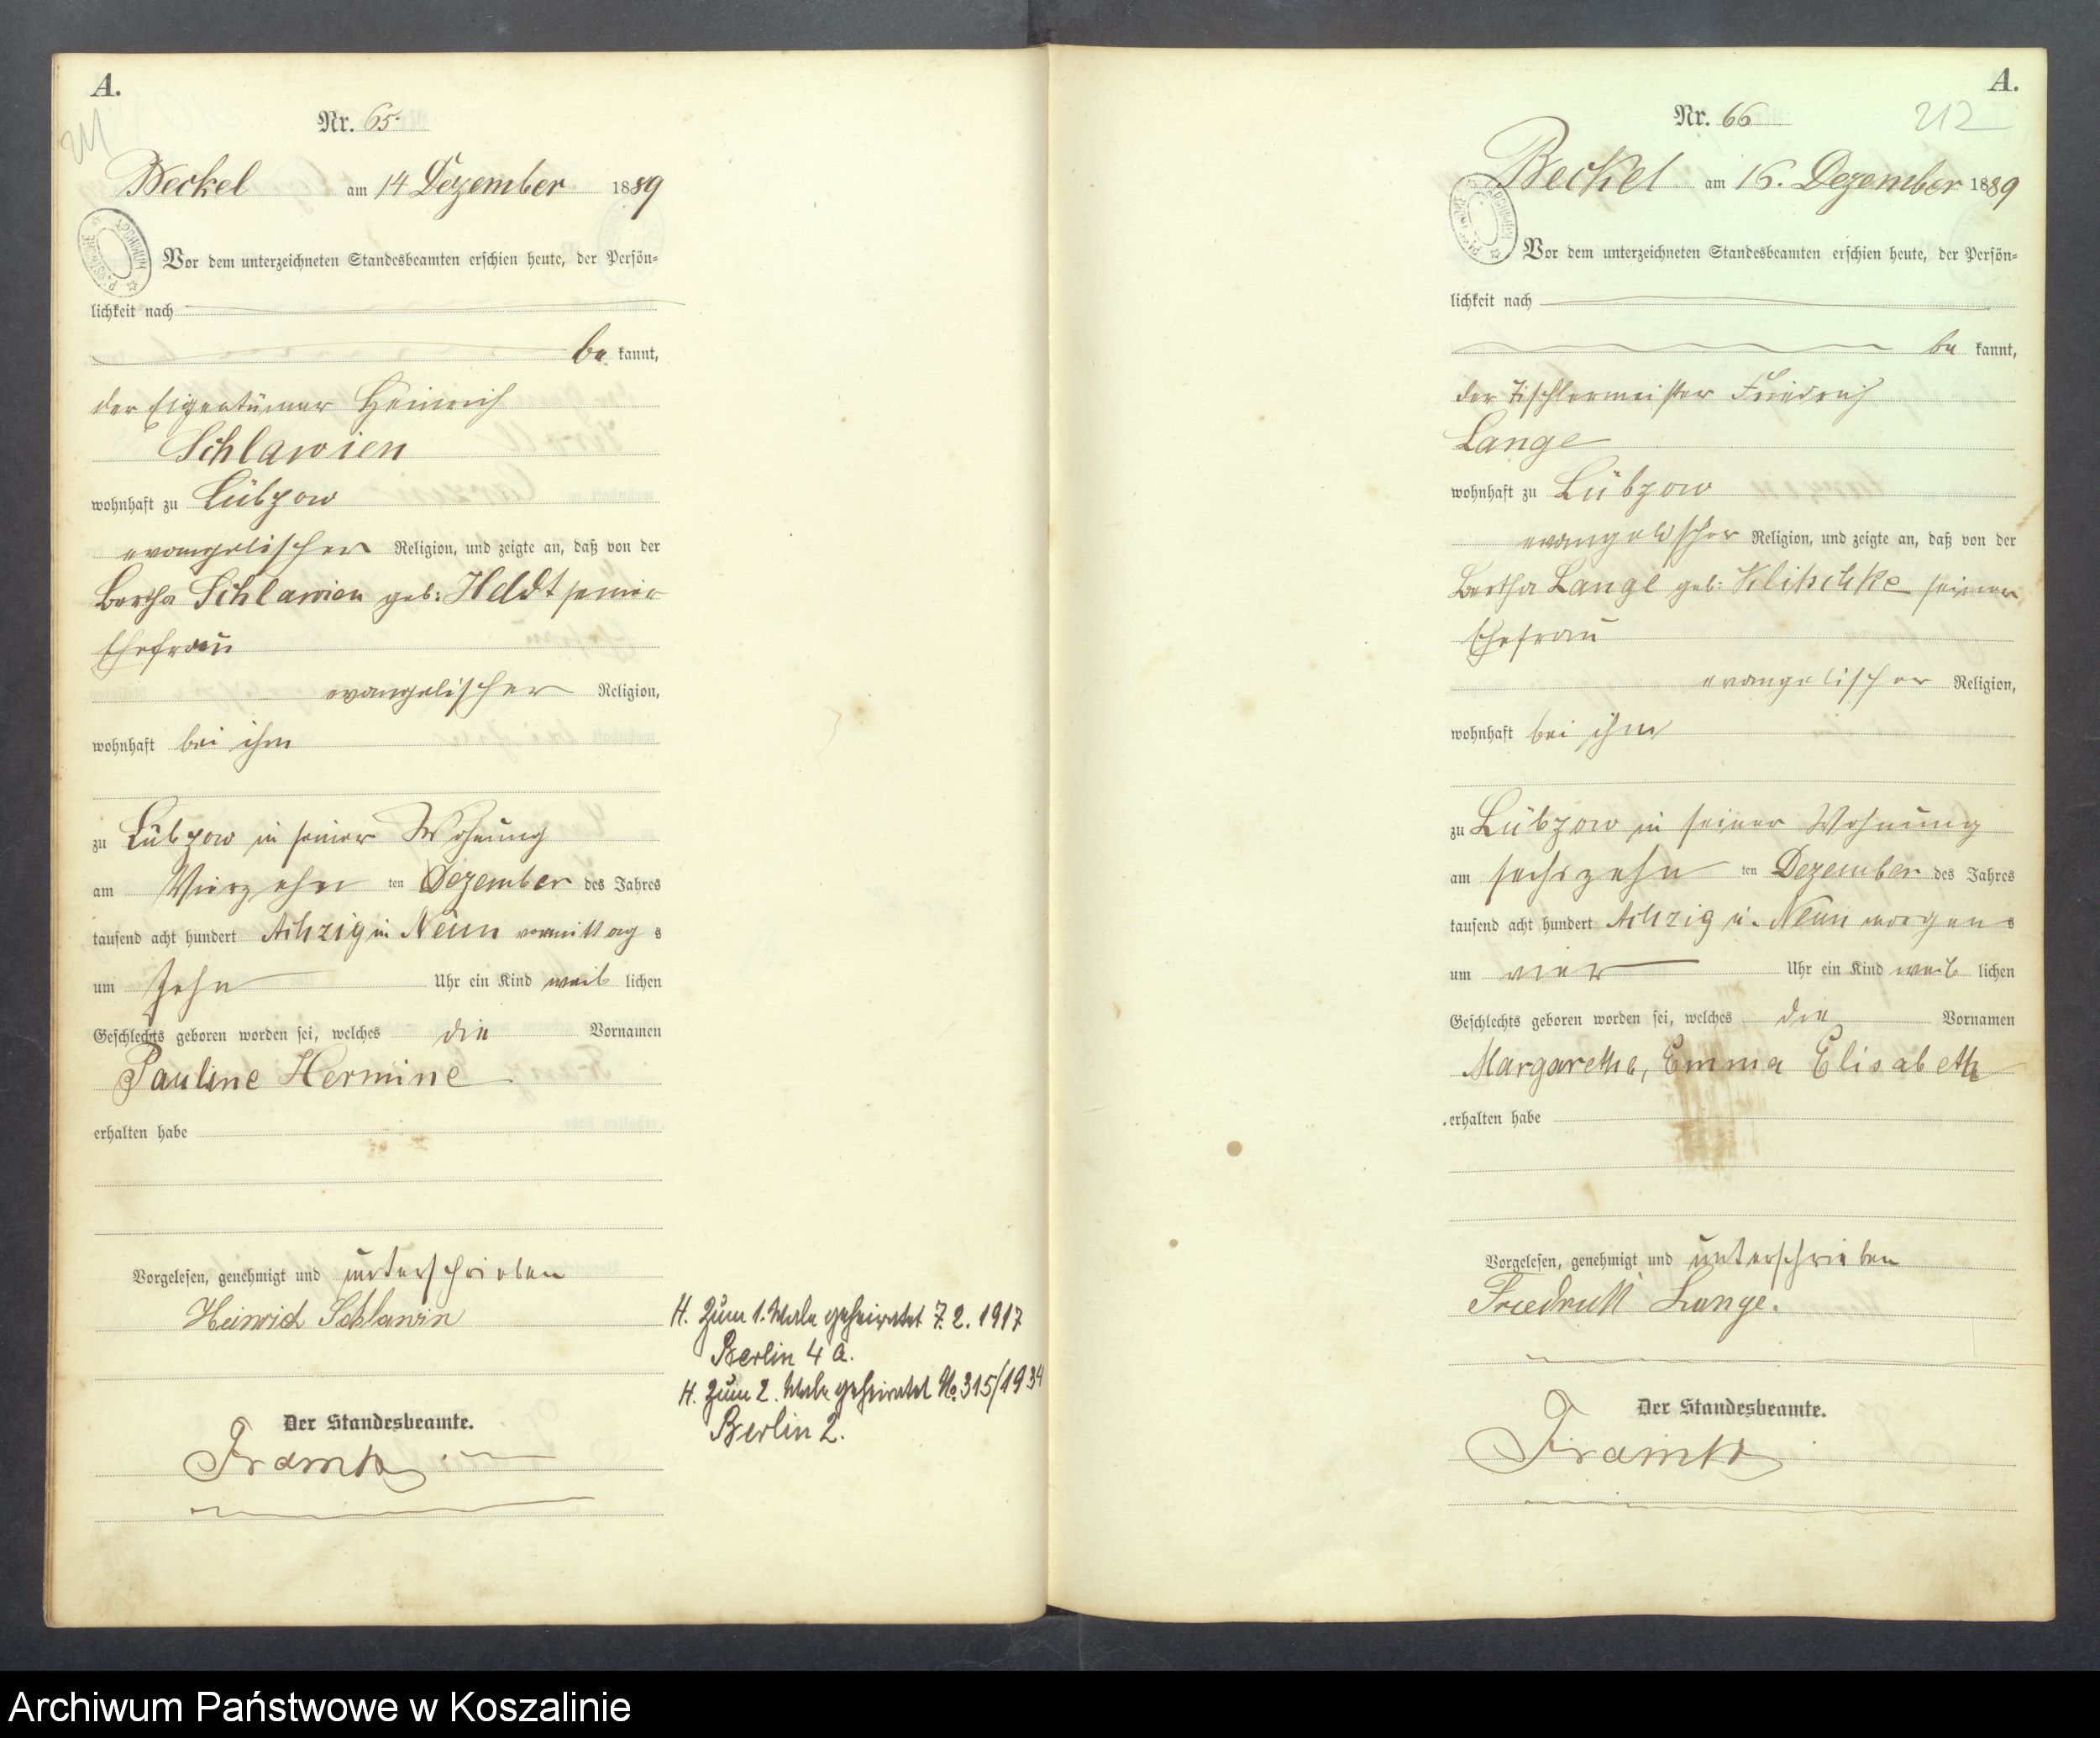 A.
211
Nr. 65.
Beckel am 14 Dezember 1889
Vor dem unterzeichneten Standesbeamten erschien heute, der Persön-
lichkeit nach
be kannt,
der Eigentümer Heinrich
Schlawien
wohnhaft zu Lübzow
evangelischer Religion, und zeigte an, daß von der
Bertha Schlawien geb: Heldt seiner
Ehefrau
evangelischer Religion,
wohnhaft bei ihm
zu Lübzow in seiner Wohnung
am Vierzehn ten Dezember des Jahres
tausend acht hundert Achzig u Neun vormittag s
um Zehn Uhr ein Kind weib lichen
Geschlechts geboren worden sei, welches die Vornamen
Pauline Hermine
erhalten habe
Vorgelesen, genehmigt und unterschrieben
Heinrich Schlawin
Der Standesbeamte.
H. Zum 1. Male geheiratet 7.2.1917
Berlin 4 a.
H. Zum 2. Male geheiratet No. 315/1934
Berlin 2.
A.
212
Nr. 66
Beckel am 16. Dezember 1889
Vor dem unterzeichneten Standesbeamten erschien heute, der Persön-
lichkeit nach
be kannt,
der Tischlermeister Friedrich
Lange
wohnhaft zu Lübzow
evangelischer Religion, und zeigte an, daß von der
Bertha Lange geb: Klitschke seiner
Ehefrau
evangelischer Religion,
wohnhaft bei ihm
zu Lübzow in seiner Wohnung
am sechszehn ten Dezember des Jahres
tausend acht hundert Achzig u. Neun morgen s
um vier Uhr ein Kind weib lichen
Geschlechts geboren worden sei, welches die Vornamen
Margarethe, Emma Elisabeth
erhalten habe
Vorgelesen, genehmigt und unterschrieben
Friedrich Lange.
Der Standesbeamte.
Archiwum Państwowe w Koszalinie